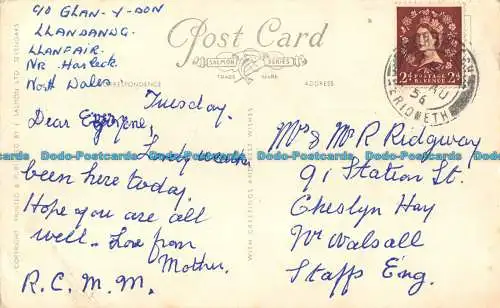 C/O GLAN-Y-DON
LLANDANOG
LLANFAIR
NR Harlech
North Wales
Post Card
SALMON SERIES
TRADE MARK
CORRESPONDENCE
ADDRESS
COPYRIGHT PRINTED & PUBLISHED BY J. SALMON LTD. SEVENOAKS
WITH GREETINGS AND BEST WISHES
Tuesday.
Dear
Lovely weather
been here today.
Hope you are all
well. Love from
Mother.
R. C. M. M.
2D POSTAGE REVENUE 2D
AU
56
MERIONETH
Mr & Mrs R Ridgway
91 Station St.
Cheslyn Hay
Nr Walsall
Staffs Eng.
Dodo-Postcards Dodo-Postcards Dodo-Postcards Dodo-Postcards